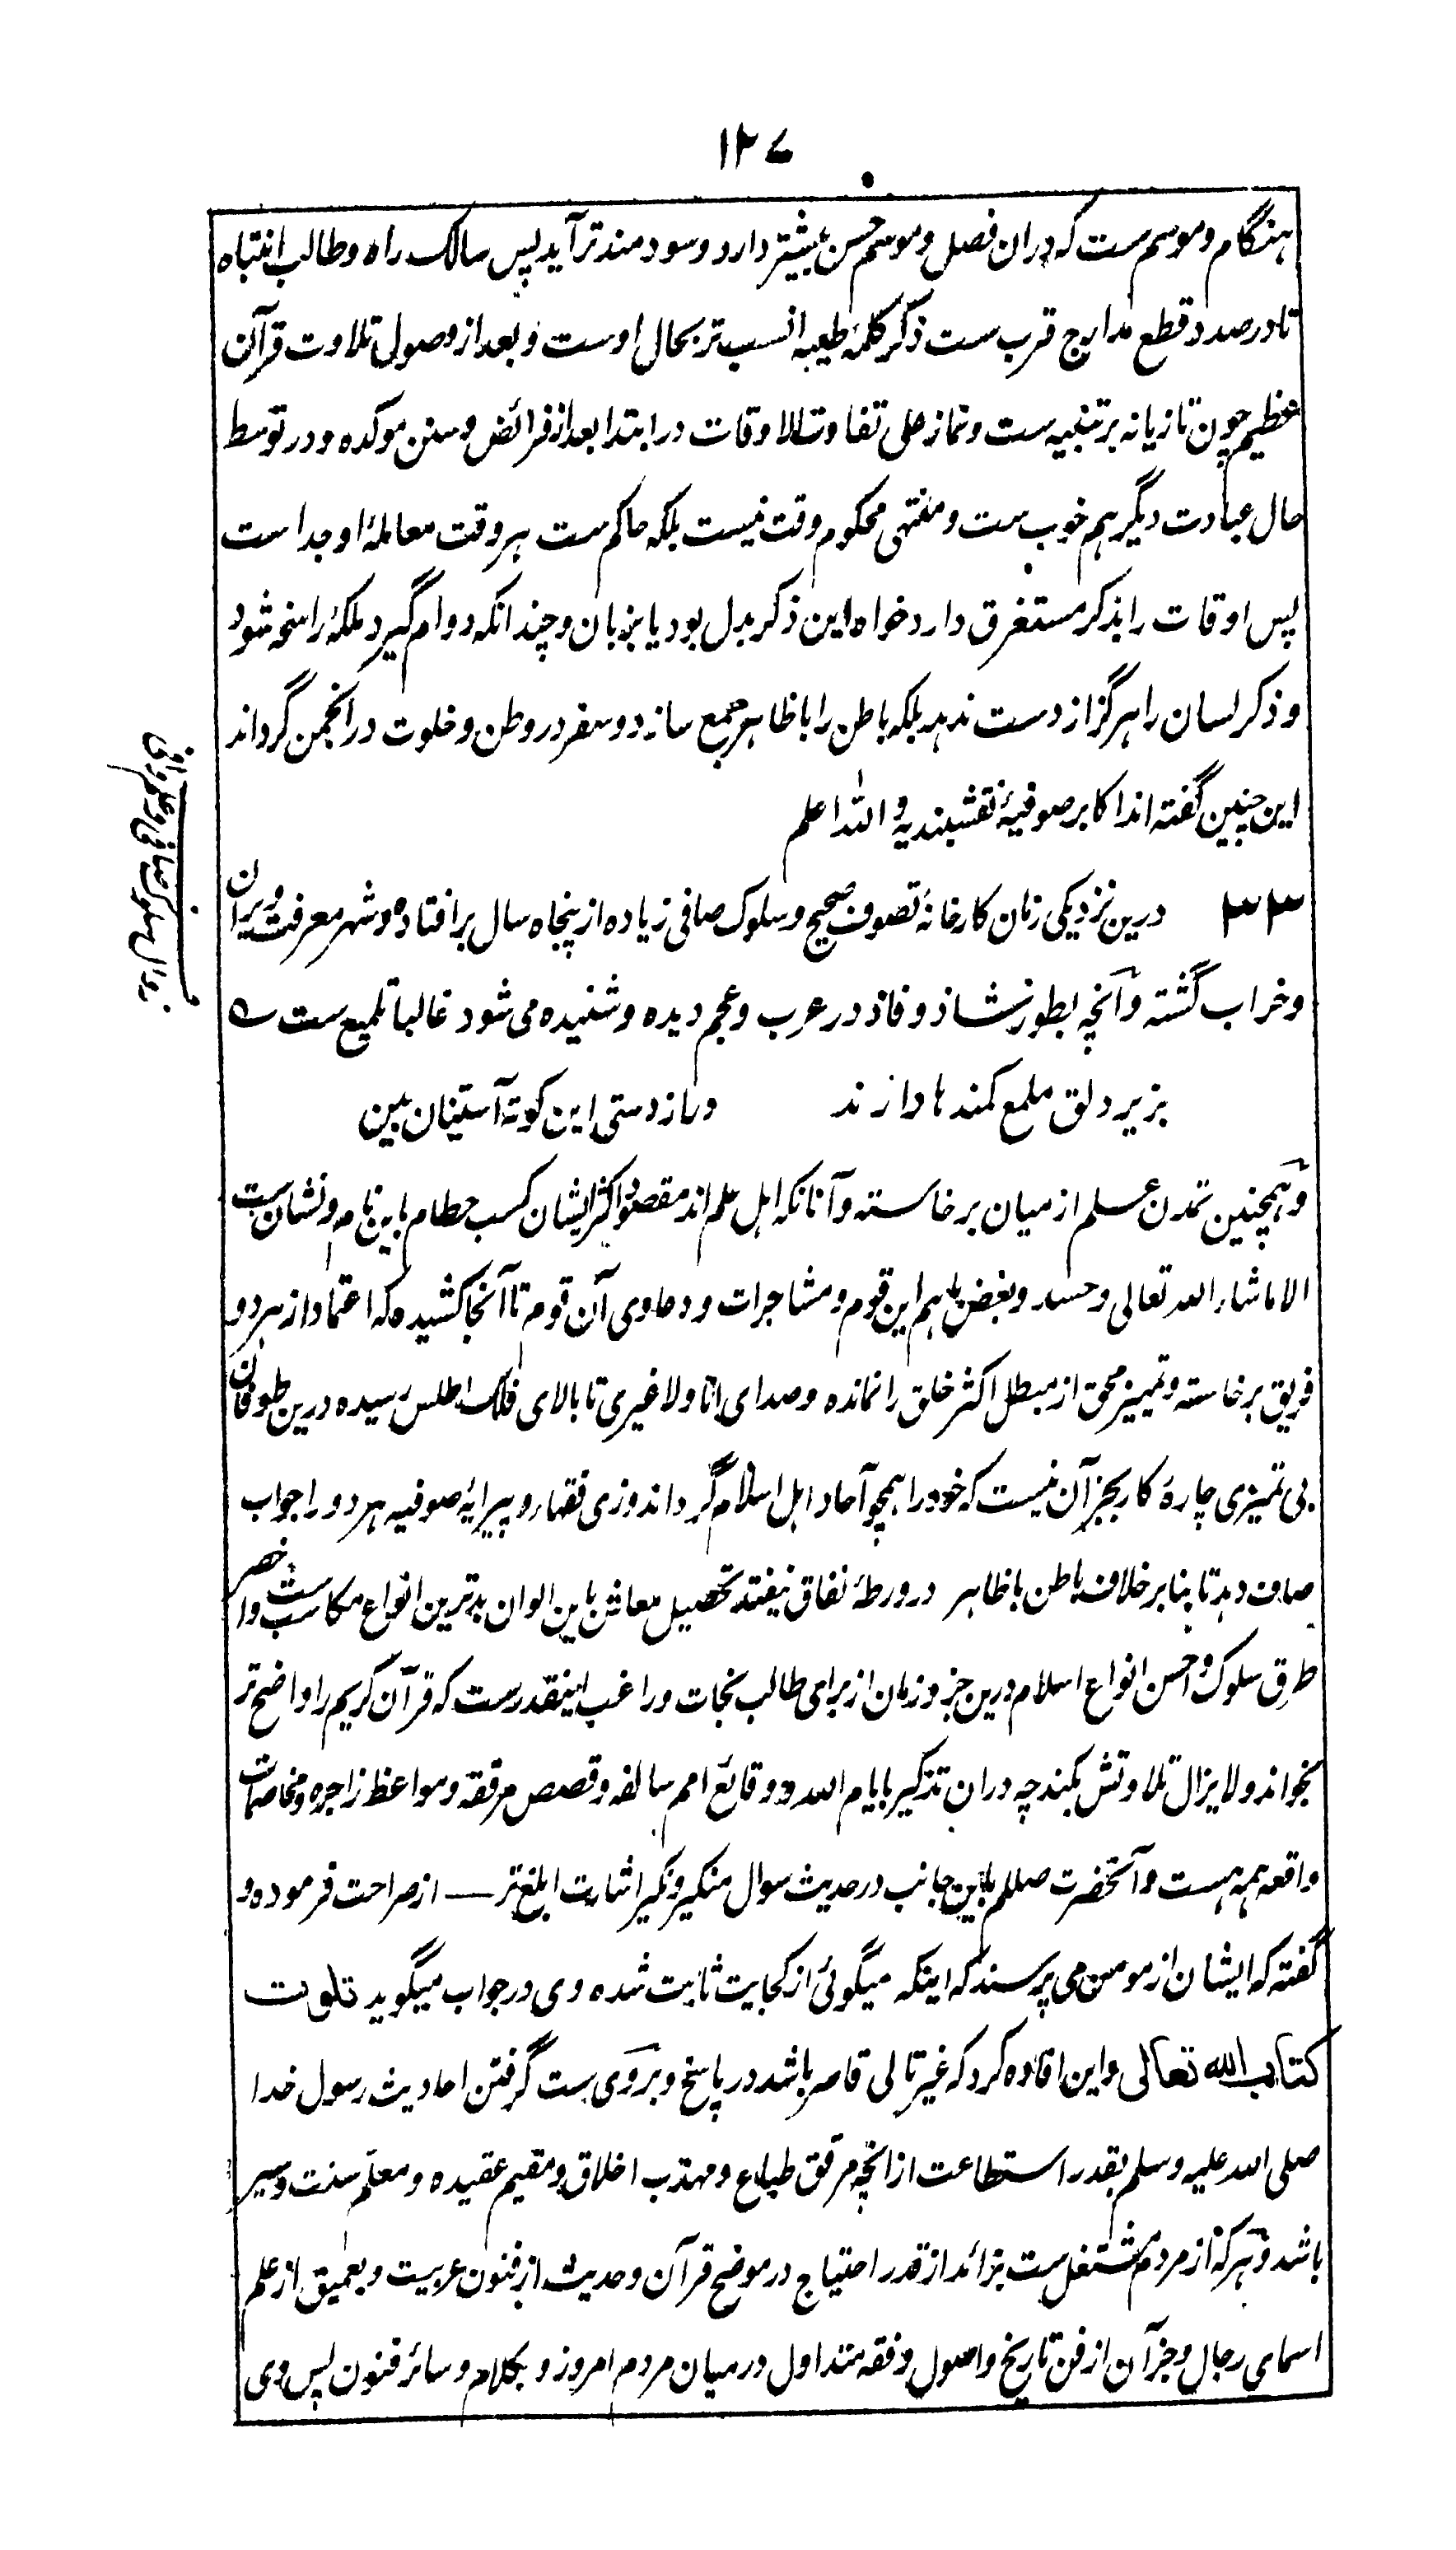 ۱۲۷
هنگام و موسم ست که دران فصل و موسم حسن بیشتر دارد و سودمندتر آید پس سالک راه و طالب انتباه
تا در صدد قطع مدارج قرب ست ذکر کلمۂ طیبه انسب تر بحال اوست و بعد از وصول تلاوت قرآن
عظیم چون تازیانه بر تنبیه ست و نماز علی تفاوت الاوقات در ابتدا بعد از فرائض و سنن موکده و در توسط
حال عبادت دیگر هم خوب ست و منتهی محکوم وقت نیست بلکه حاکم ست هر وقت معاملۂ او جداست
پس اوقات را بذکر مستغرق دارد خواه این ذکر بدل بود یا بزبان و چندانکه دوام گیرد ملکۂ راسخه شود
و ذکر لسان را هرگز از دست ندهد بلکه باطن را با ظاهر جمع سازد و سفر در وطن و خلوت در انجمن گرداند
این چنین گفته اند اکابر صوفیۂ نقشبندیه و الله اعلم
۳۳ درین نزدیکی زمان کارخانۂ تصوف صحیح و سلوک صافی زیاده از پنجاه سال برافتاده و شهر معرفت ویران
و خراب گشته و آنچه بطور شاذ و فاذ در عرب و عجم دیده و شنیده می شود غالبا تلمیع ست ؎
بزیر دلق ملمع کمندها دارند درازدستی این کوته آستینان بین
و همچنین تمدن علم از میان برخاسته و آنانکه اهل علم اند مقصود اکثر ایشان کسب حطام باین نام و نشان ست
الا ماشاء الله تعالی و حسد و بغض باهم این قوم و مشاجرات و دعاوی آن قوم تا آنجا کشیده که اعتماد از هر دو
فریق برخاسته و تمییز محق از مبطل اکثر خلق را نمانده و صدای انا ولا غیری تا بالای فلک اطلس رسیده درین طوفان
بی تمیزی چارۂ کار بجز آن نیست که خود را همچو آحاد اهل اسلام گرداند و زی فقهاء و پیرایۂ صوفیه هر دو را جواب
صاف دهد تا بنابر خلاف باطن با ظاهر در ورطۂ نفاق نیفتد تحصیل معاش باین الوان بدترین انواع مکاسب ست و اخصر
طرق سلوک و احسن انواع اسلام درین جزو زمان از برای طالب نجات و راغب اینقدرست که قرآن کریم را واضح تر
بخواند و لا یزال تلاوتش بکند چه دران تذکیر بایام الله و وقائع امم سالفه و قصص مرققه و مواعظ زاجره و مخاصمات
واقعه همه هست و آنحضرت صللم باین جانب در حدیث سوال منکر و نکیر اشارت ابلغ تر — از صراحت فرموده و
گفته که ایشان از مومن می پرسند که اینکه میگوئی از کجایت ثابت شده وی در جواب میگوید تلوت
کتاب الله تعالی و این افاده کرد که غیر تالی قاصر باشد در پاسخ و بروی ست گرفتن احادیث رسول خدا
صلی الله علیه وسلم بقدر استطاعت از آنچه مرقق طباع و مهذب اخلاق و مقیم عقیده و معلم سنت و سیر
باشد و هر که از مردم مشتغل ست بزائد از قدر احتیاج در موضح قرآن و حدیث از فنون عربیت و بعمیق از علم
اسمای رجال و جز آن از فن تاریخ و اصول و فقه متداول در میان مردم امروز و بکلام و سائر فنون پس وی